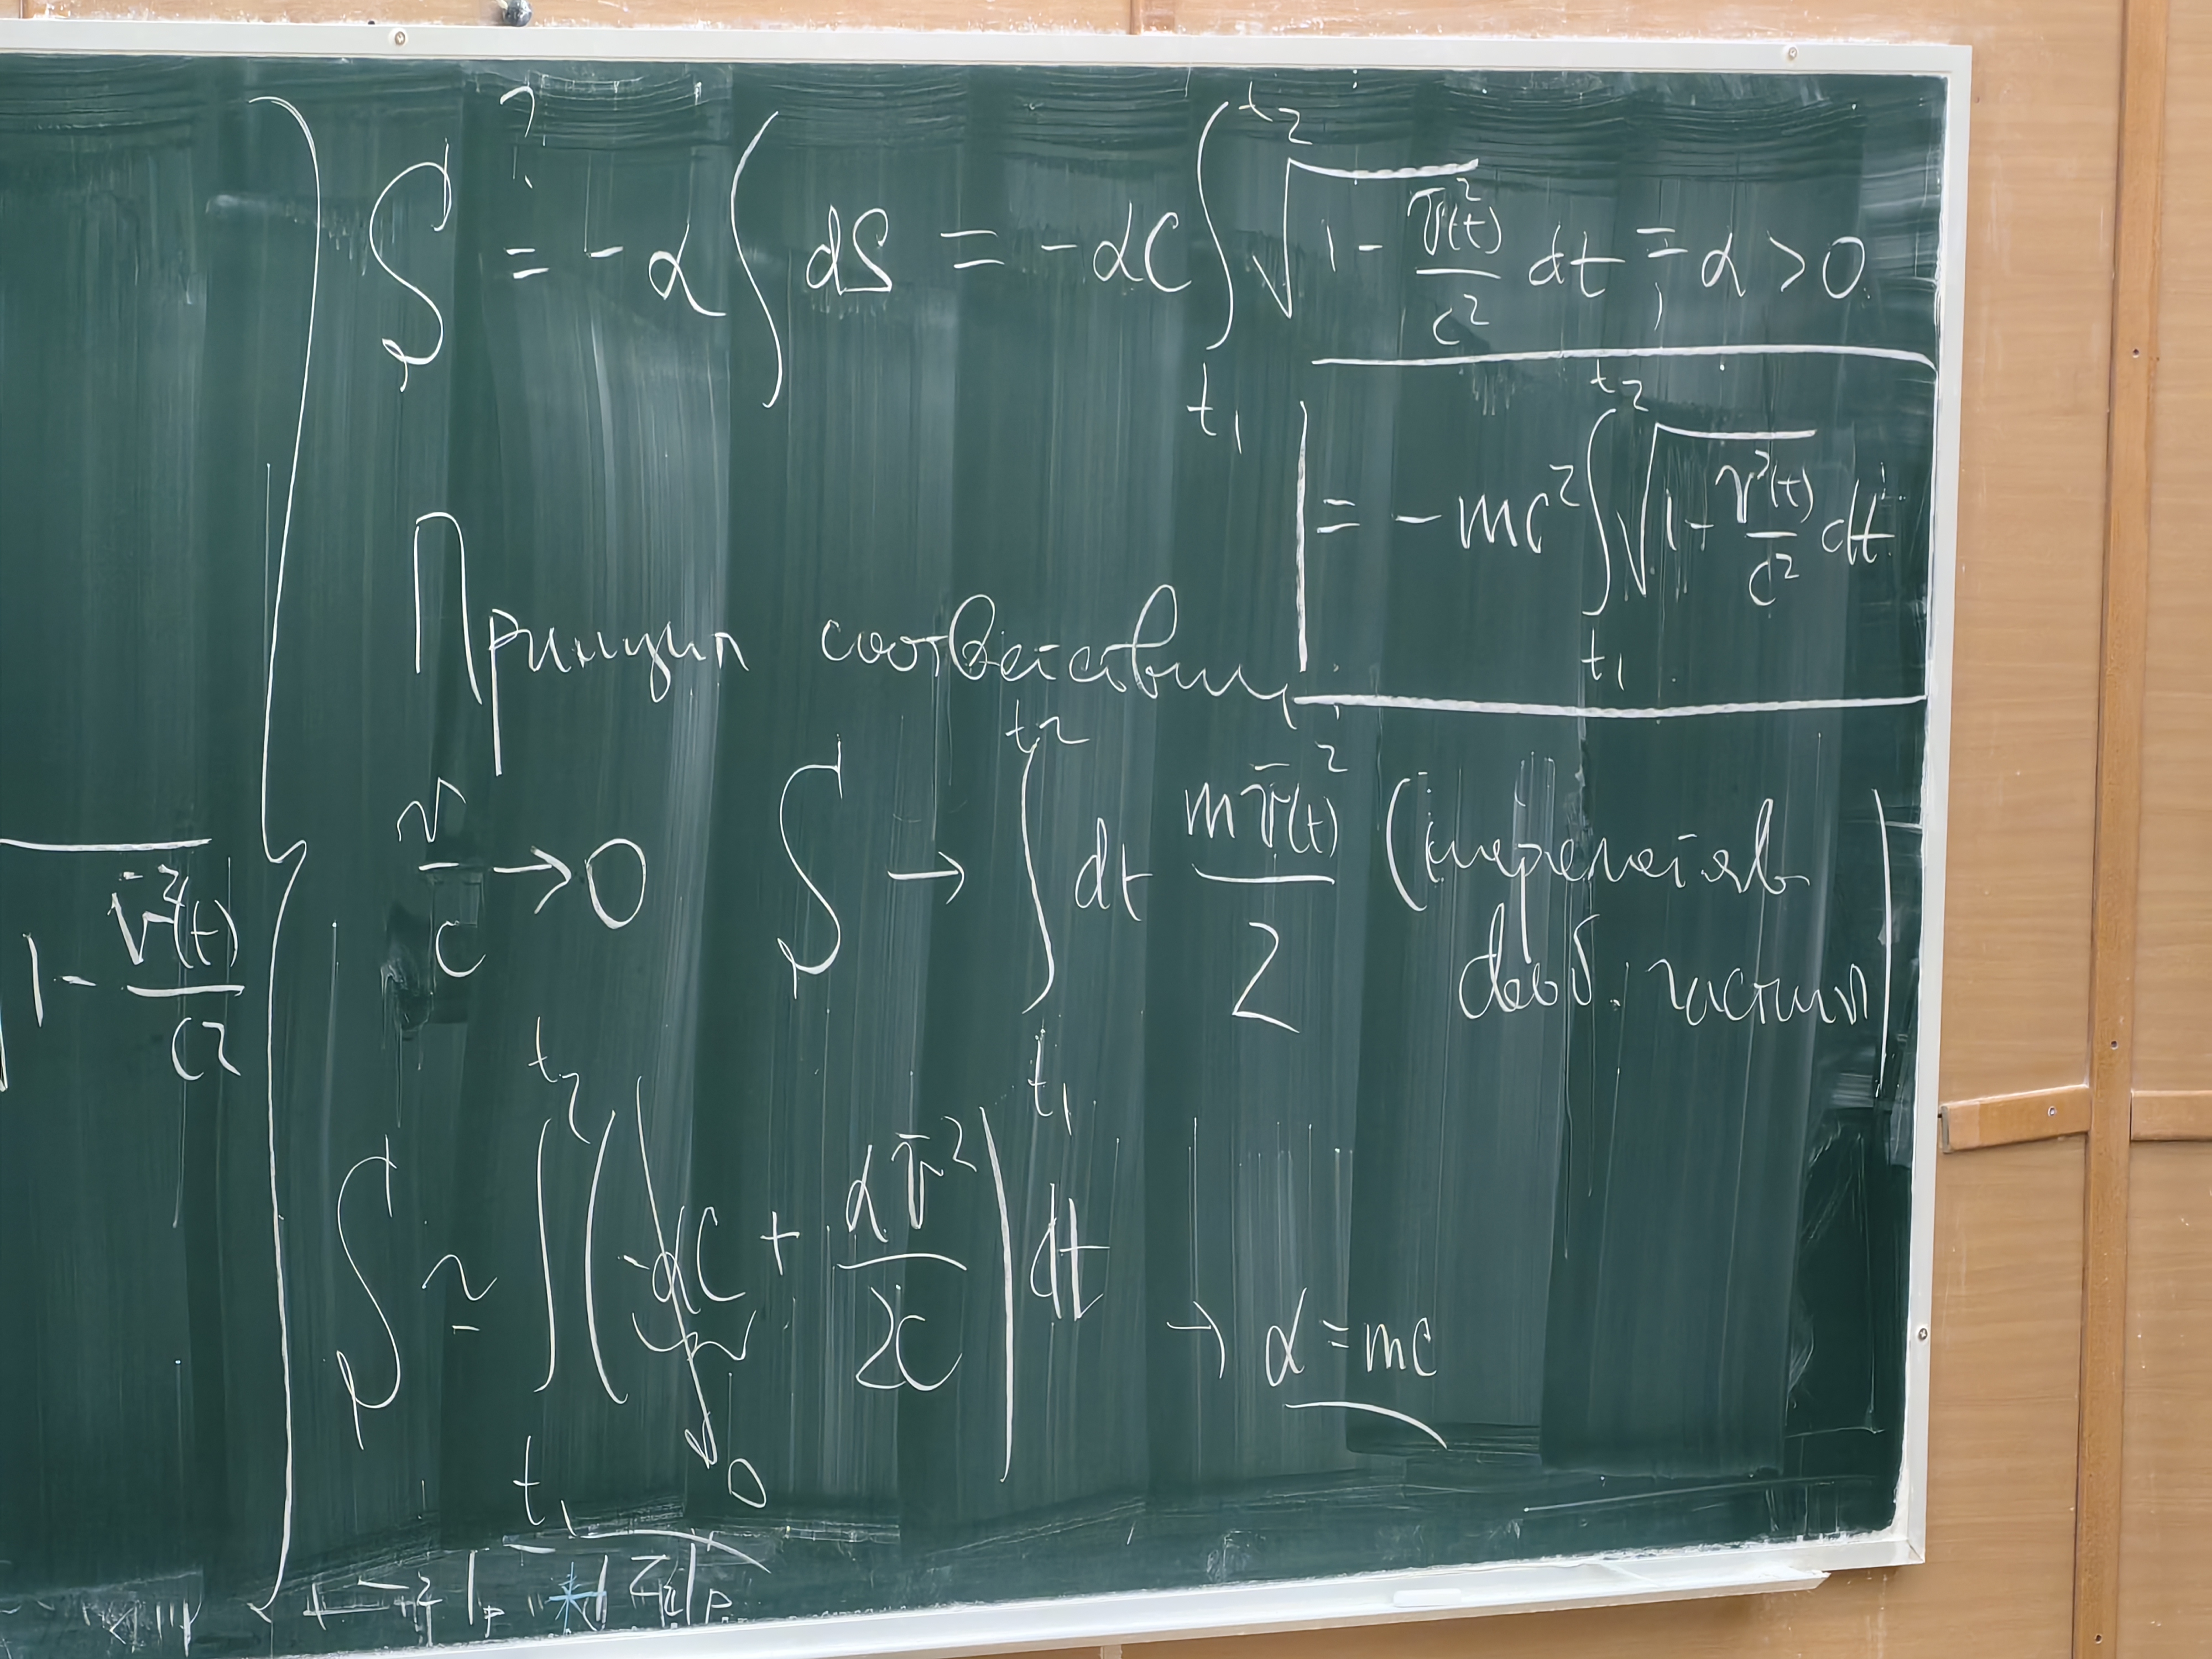 S ≟ -α ∫ dS = -αc ∫_{t₁}^{t₂} √(1 - v̄(t)²/c²) dt =, α > 0
= -mc² ∫_{t₁}^{t₂} √(1 - v²(t)/c²) dt
Принцип соответствия
v/c → 0 S → ∫_{t₁}^{t₂} dt mv̄(t)²/2 (нерелятив
своб. частиц)
1 - v̄²(t)/c²
S ≃ ∫_{t₁}^{t₂} (-αc + αv̄²/2c) dt → α = mc
0